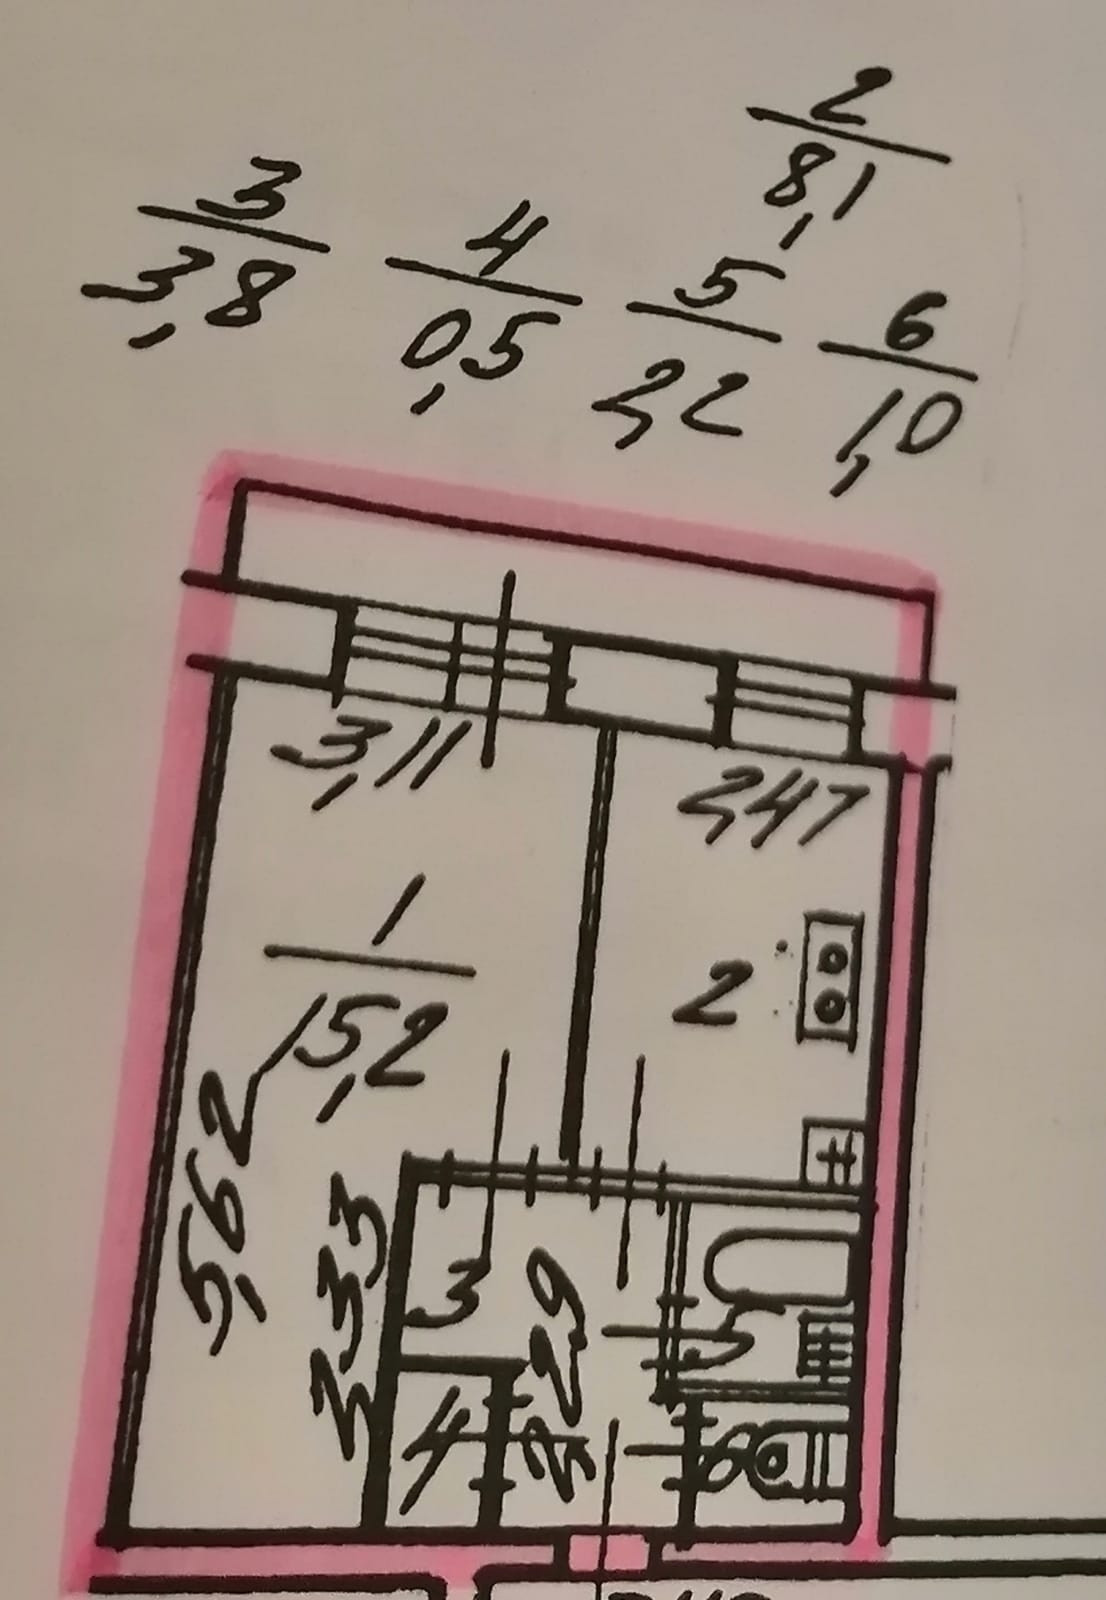 2
8,1
3
3,8
4
0,5
5
2,2
6
1,0
3,11
2,47
1
15,2
2
5,62
3
4
5
6